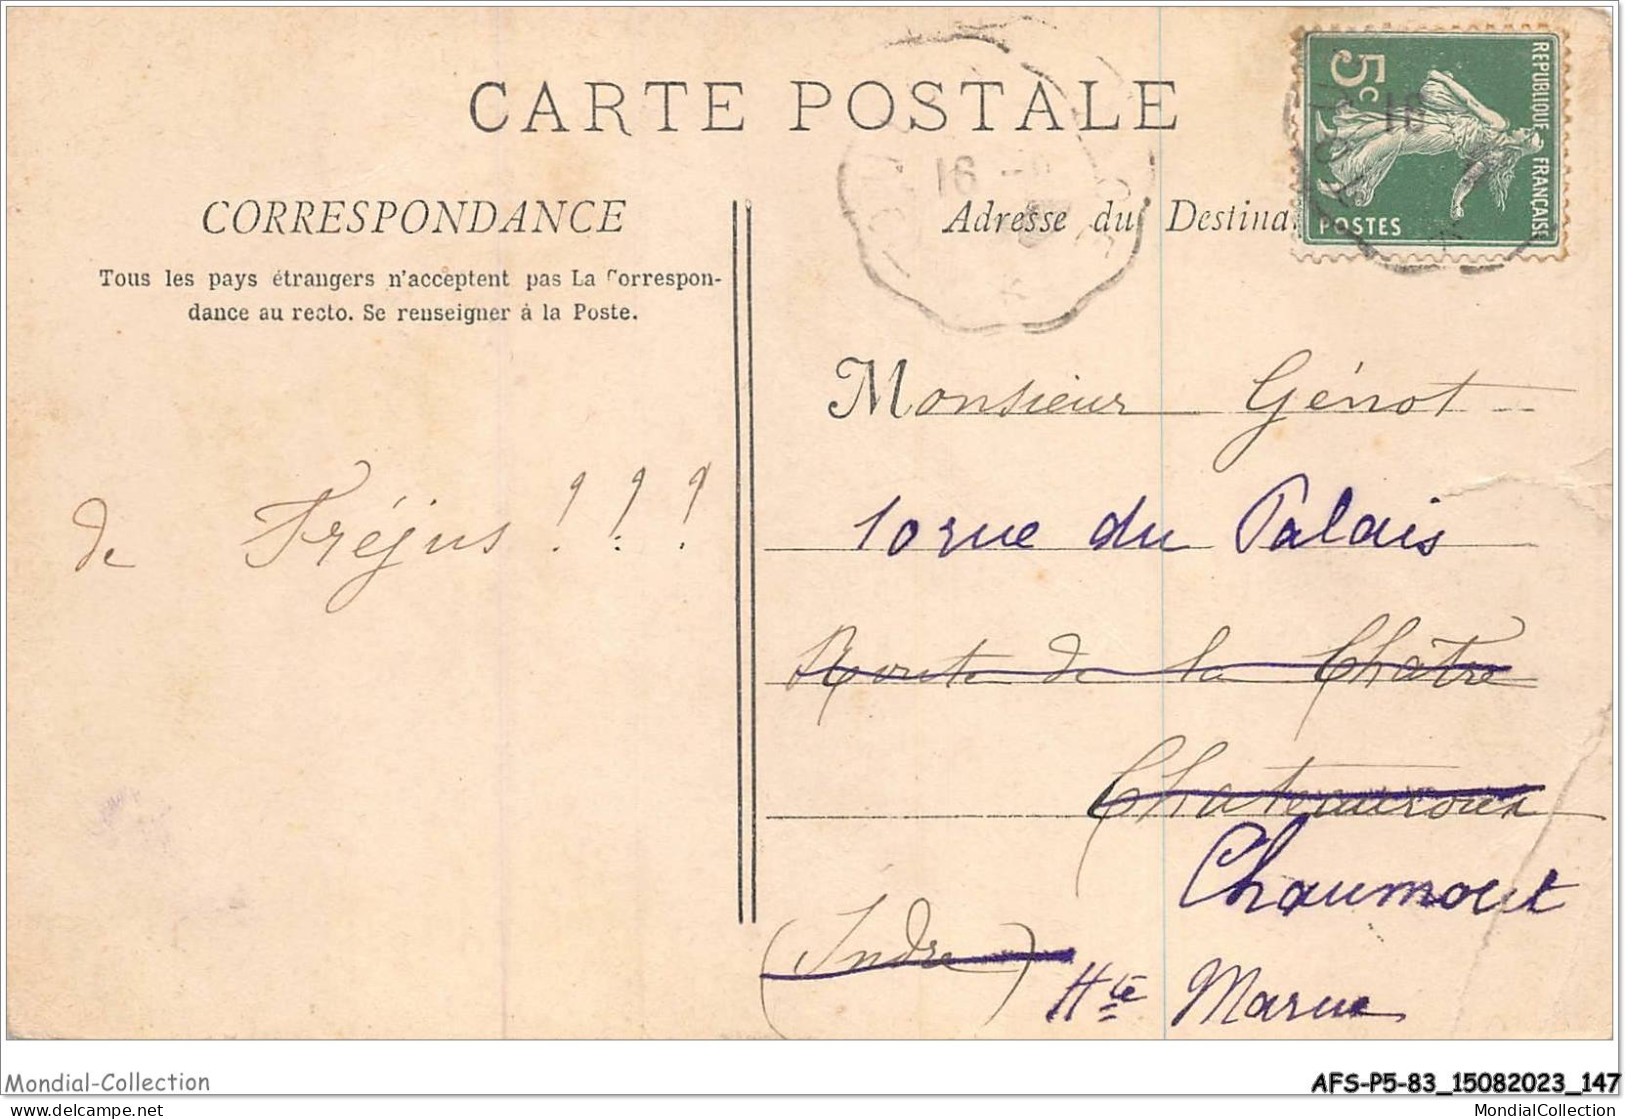 CARTE POSTALE
CORRESPONDANCE
Tous les pays étrangers n'acceptent pas La Correspon-
dance au recto. Se renseigner à la Poste.
de Fréjus ! ! !
Adresse du Destina
REPUBLIQUE FRANÇAISE
5c
POSTES
16
16
Monsieur Génot
10 rue du Palais
Route de la Châtre
Chateauroux
Chaumont
(Indre)
Hte Marne
Mondial-Collection
delcampe.net
AFS-P5-83_15082023_147
MondialCollection